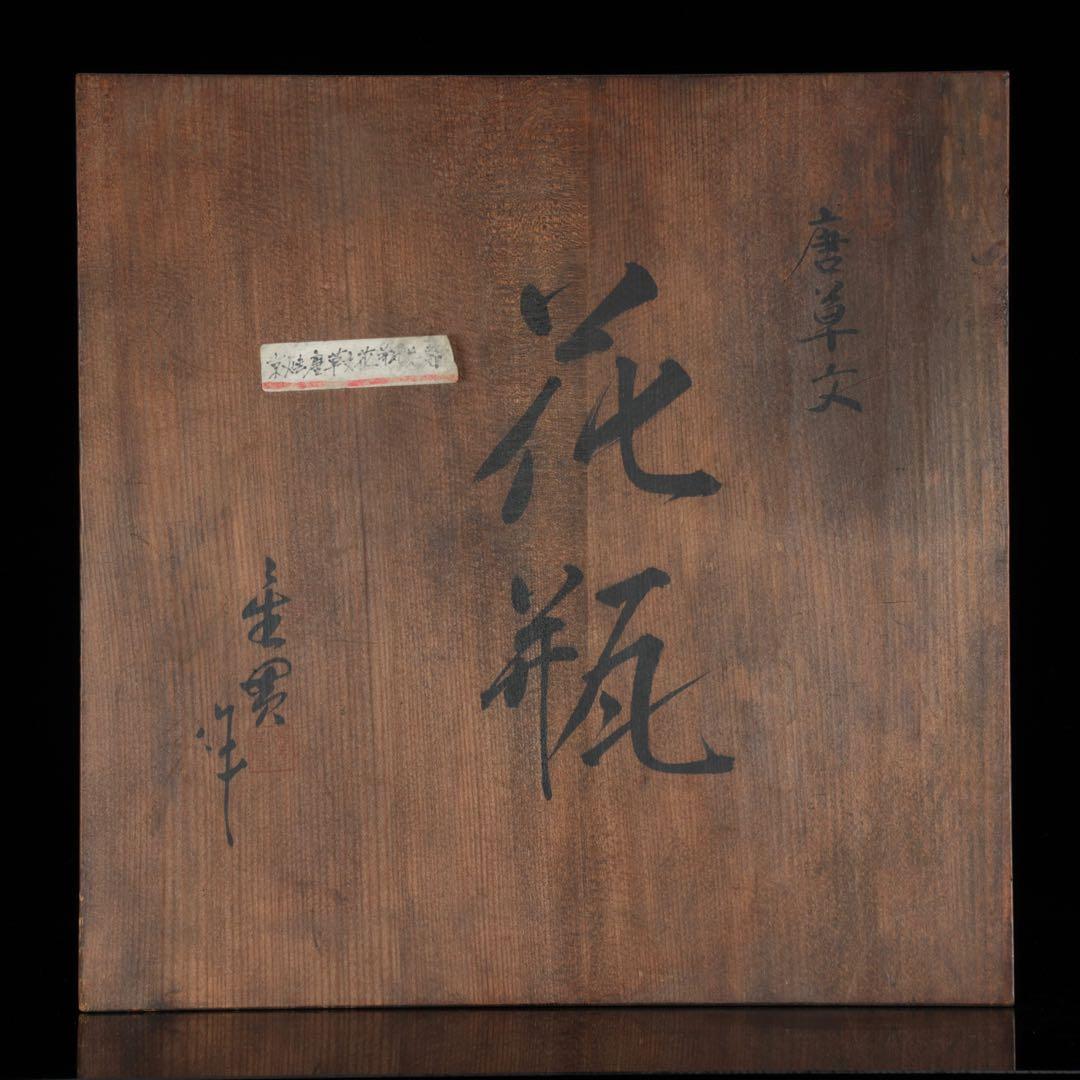 唐草文
花瓶
作
京焼唐草文花瓶